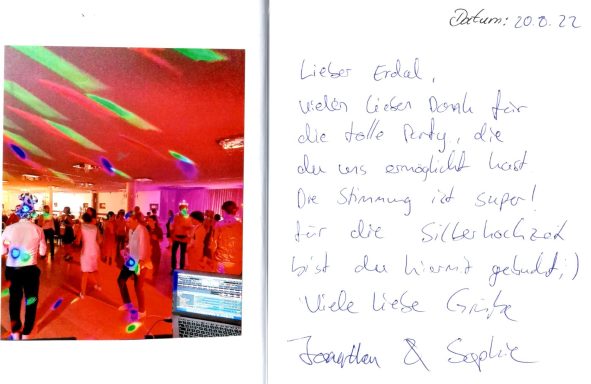 Datum: 20.8.22
Lieber Erdal,
vielen lieben Dank für
die tolle Party, die
du uns ermöglicht hast
Die Stimmung ist super!
für die Silberhochzeit
bist du hiermit gebucht ;)
Viele liebe Grüße
Jonathan & Sophie